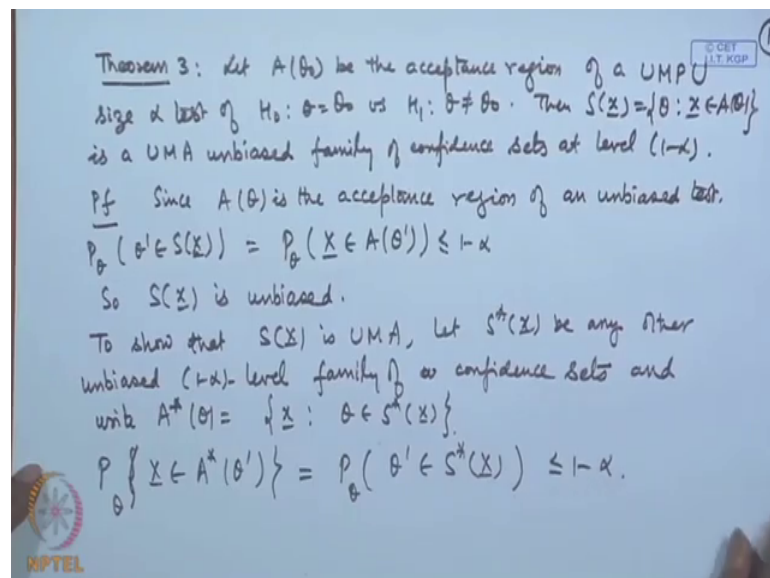 © CET
I.I.T. KGP
Theorem 3: Let A(θ₀) be the acceptance region of a UMPU
size α test of H₀: θ = θ₀ vs H₁: θ ≠ θ₀. Then S(x) = {θ: x ∈ A(θ)}
is a UMA unbiased family of confidence sets at level (1-α).
Pf Since A(θ) is the acceptance region of an unbiased test.
P_θ (θ' ∈ S(X)) = P_θ (X ∈ A(θ')) ≤ 1-α
So S(X) is unbiased.
To show that S(X) is UMA, Let S*(X) be any other
unbiased (1-α)-level family of confidence sets and
write A*(θ) = {x : θ ∈ S*(x)}.
P_θ {X ∈ A*(θ')} = P_θ (θ' ∈ S*(X)) ≤ 1-α.
NPTEL